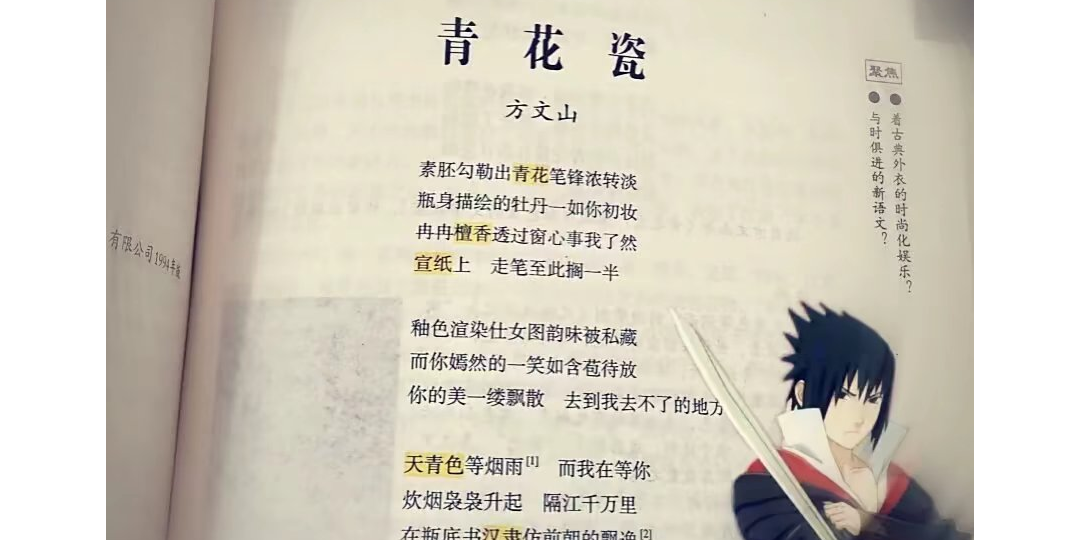 青花瓷
方文山
素胚勾勒出青花笔锋浓转淡
瓶身描绘的牡丹一如你初妆
冉冉檀香透过窗心事我了然
宣纸上　走笔至此搁一半
釉色渲染仕女图韵味被私藏
而你嫣然的一笑如含苞待放
你的美一缕飘散　去到我去不了的地方
天青色等烟雨[1]　而我在等你
炊烟袅袅升起　隔江千万里
在瓶底书汉隶仿前朝的飘逸[2]
聚焦
● 着古典外衣的时尚化娱乐？
● 与时俱进的新语文？
有限公司1994年版